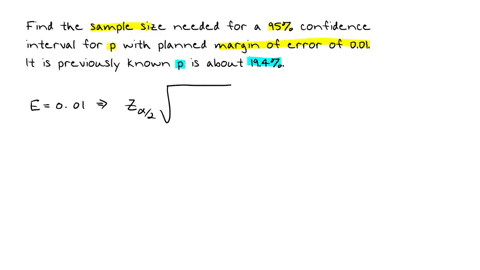 Find the sample size needed for a 95% confidence
interval for p with planned margin of error of 0.01.
It is previously known p is about 19.4%.
E = 0.01 ⇒ Z_{α/2} √